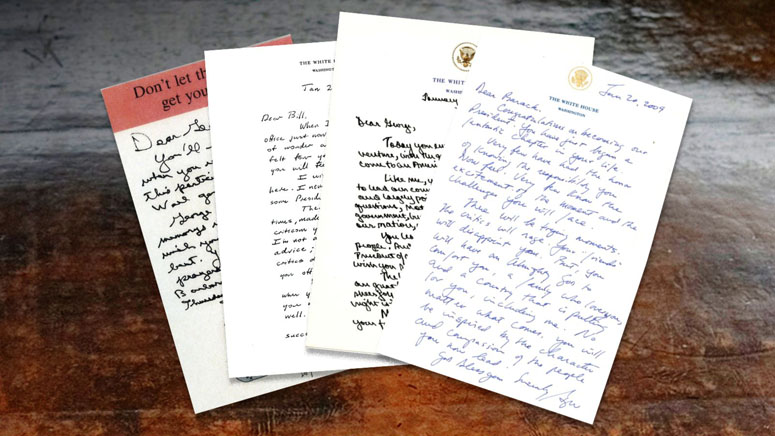 Don't let th
get you
Dear Ge
You'll
when you
this partic
Well go
Georg
memorys
wish you
best.
prayers
Barbar
Thursda
THE WHITE HOUSE
WASHINGTON
Jan 2
Dear Bill,
When I
office just now
of wonder a
felt four ye
you will fee
I wi
here. I neve
some Presid
The
times, made
criticism y
I'm not a
advice;
critics d
you off
when y
you
well.
succe
THE WHI
WASHIN
January
Dear George,
Today you
venture, with the g
come to an Ameri
Like me,
to lead our cou
and largely po
questions, mos
government,
our nation,
You lea
people.
President of
wish you
The
are great
sheer joy
right is
your f
THE WHITE HOUSE
WASHINGTON
Jan 20, 2009
Dear Barack,
Congratulations on becoming our
President. You have just begun a
fantastic chapter in your life.
Very few have had the honor
of knowing the responsibility you
now feel. Very few know the
excitement of the moment and the
challenges you will face.
There will be trying moments.
The critics will rage. Your "friends"
will disappoint you. But, you
will have an Almighty God to
comfort you, a family who loves you,
and a country that is pulling
for you, including me. No
matter what comes, you will
be inspired by the character
and compassion of the people
you now lead.
God bless you. Sincerely,